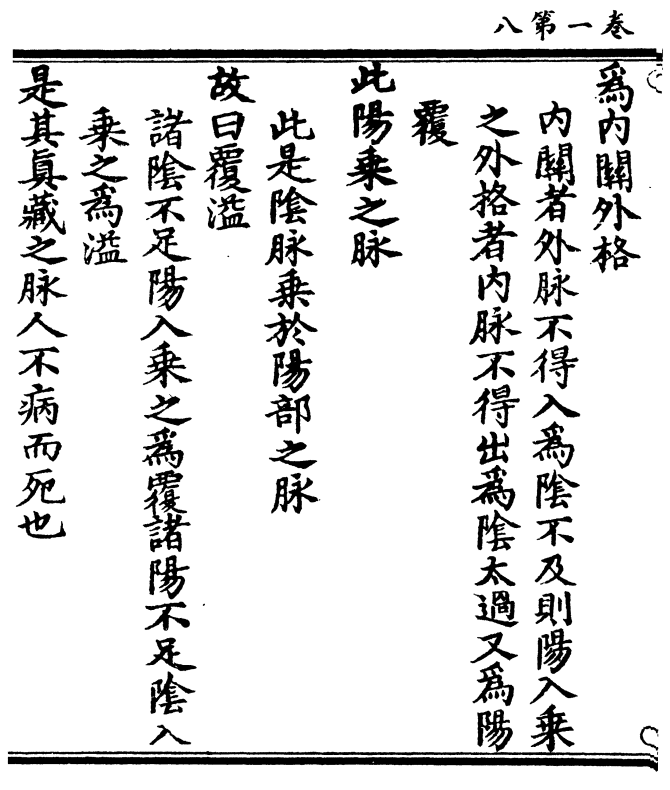 卷一第八
爲内關外格
内關者外脉不得入爲陰不及則陽入乗
之外格者内脉不得出爲陰太過又爲陽
覆
此陽乗之脉
此是陰脉乗於陽部之脉
故曰覆溢
諸陰不足陽入乗之爲覆諸陽不足陰入
乗之爲溢
是其眞藏之脉人不病而死也